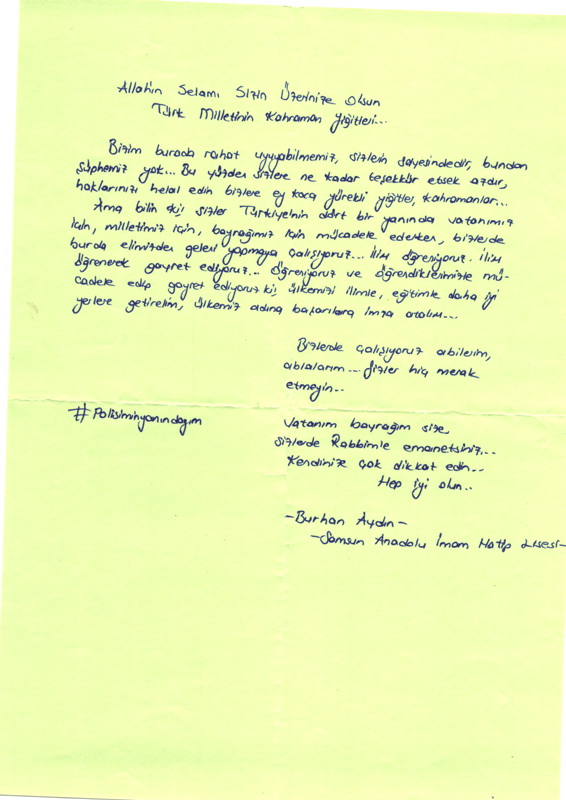 Allah'ın Selamı Sizin Üzerinize Olsun
Türk Milletinin Kahraman Yiğitleri...
Bizim burada rahat uyuyabilmemiz, sizlerin sayesindedir, bundan
şüphemiz yok... Bu yüzden sizlere ne kadar teşekkür etsek azdır,
haklarınızı helal edin bizlere ey koca yürekli yiğitler, kahramanlar...
Ama bilin ki; sizler Türkiye'nin dört bir yanında vatanımız
için, milletimiz için, bayrağımız için mücadele ederken, bizlerde
burda elimizden geleni yapmaya çalışıyoruz... İlim öğreniyoruz. İlim
öğrenerek gayret ediyoruz... Öğreniyoruz ve öğrendiklerimizle mü-
cadele edip gayret ediyoruz ki; ülkemizi ilimle, eğitimle daha iyi
yerlere getirelim, ülkemiz adına başarılara imza atalım...
Bizlerde çalışıyoruz abilerim,
ablalarım... Sizler hiç merak
etmeyin..
#Polisiminyanındayım
Vatanım bayrağım size,
sizlerde Rabbimle emanetsiniz...
Kendinize çok dikkat edin...
Hep iyi olun..
-Burhan Aydın-
-Samsun Anadolu İmam Hatip Lisesi-